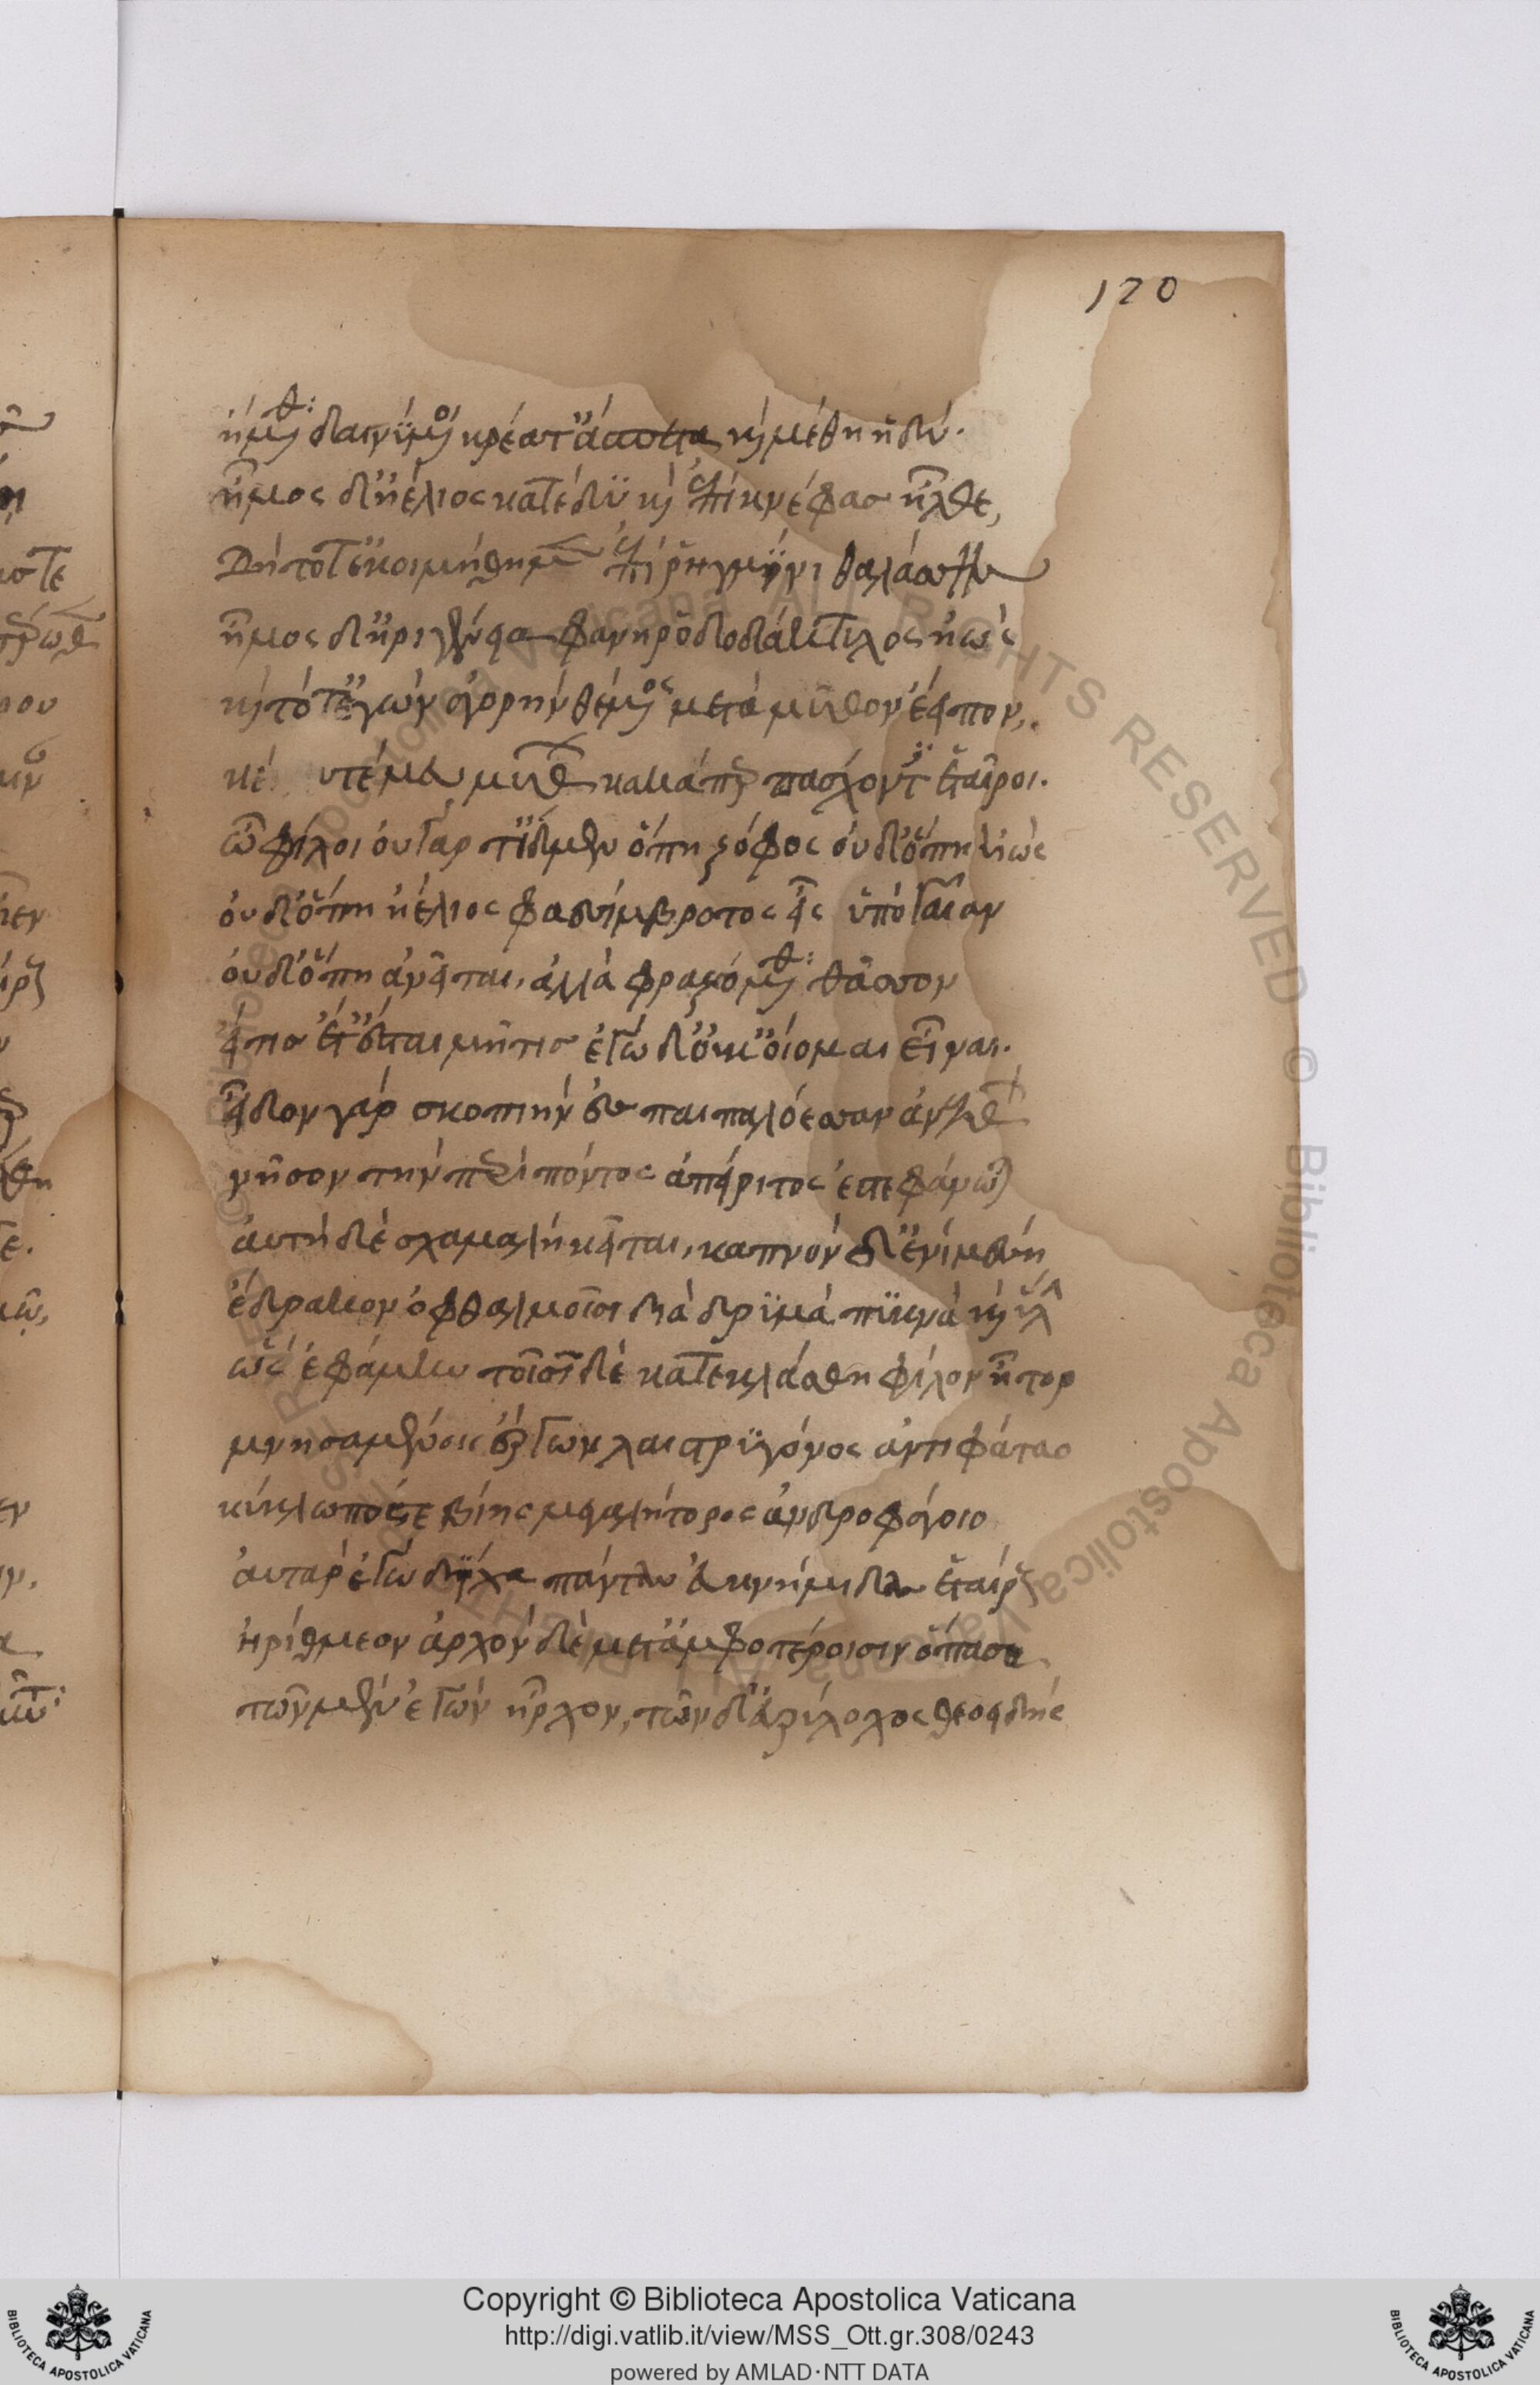 120
ἥμεθα δαινύμενοι κρέατ' ἄσπετα καὶ μέθυ ἡδύ.
ἦμος δ' ἠέλιος κατέδυ καὶ ἐπὶ κνέφας ἦλθε,
δὴ τότ' ἐκοιμήθημεν ἐπὶ ῥηγμῖνι θαλάσσης
ἦμος δ' ἠριγένεια φάνη ῥοδοδάκτυλος ἠώς
καὶ τότ' ἐγὼν ἀγορὴν θέμενος μετὰ μῦθον ἔειπον,
κέ υτέ μευ μύθων κακά περ πάσχοντες ἑταῖροι.
ὦ φίλοι οὐ γάρ τ' ἴδμεν ὅπη ζόφος οὐδ' ὅπη ἠώς
οὐδ' ὅπη ἠέλιος φαεσίμβροτος εἶσ' ὑπὸ γαῖαν
οὐδ' ὅπη ἀνεῖται, ἀλλὰ φραζόμεθα θᾶσσον
εἴ τις ἔτ' ἔσται μῆτις ἐγὼ δ' οὐκ οἴομαι εἶναι.
εἶδον γὰρ σκοπιὴν ἐς παιπαλόεσσαν ἀνελθὼν
νῆσον τὴν περὶ πόντος ἀπείριτος ἐστεφάνωται
αὐτὴ δὲ χθαμαλὴ κεῖται, καπνὸν δ' ἐνὶ μέσση
ἔδρακον ὀφθαλμοῖσι διὰ δρυμὰ πυκνὰ καὶ ὕλην
ὣς ἐφάμην τοῖσιν δὲ κατεκλάσθη φίλον ἦτορ
μνησαμένοις ἔργων λαιστρυγόνος ἀντιφάταο
κύκλωπός τε βίης μεγαλήτορος ἀνδροφάγοιο
αὐτὰρ ἐγὼ δίχα πάντας ἐυκνήμιδας ἑταίρους
ἠρίθμεον ἀρχὸν δὲ μετ' ἀμφοτέροισιν ὄπασσα
τῶν μὲν ἐγὼν ἦρχον, τῶν δ' εὐρύλοχος θεοειδής
Copyright © Biblioteca Apostolica Vaticana
http://digi.vatlib.it/view/MSS_Ott.gr.308/0243
powered by AMLAD·NTT DATA